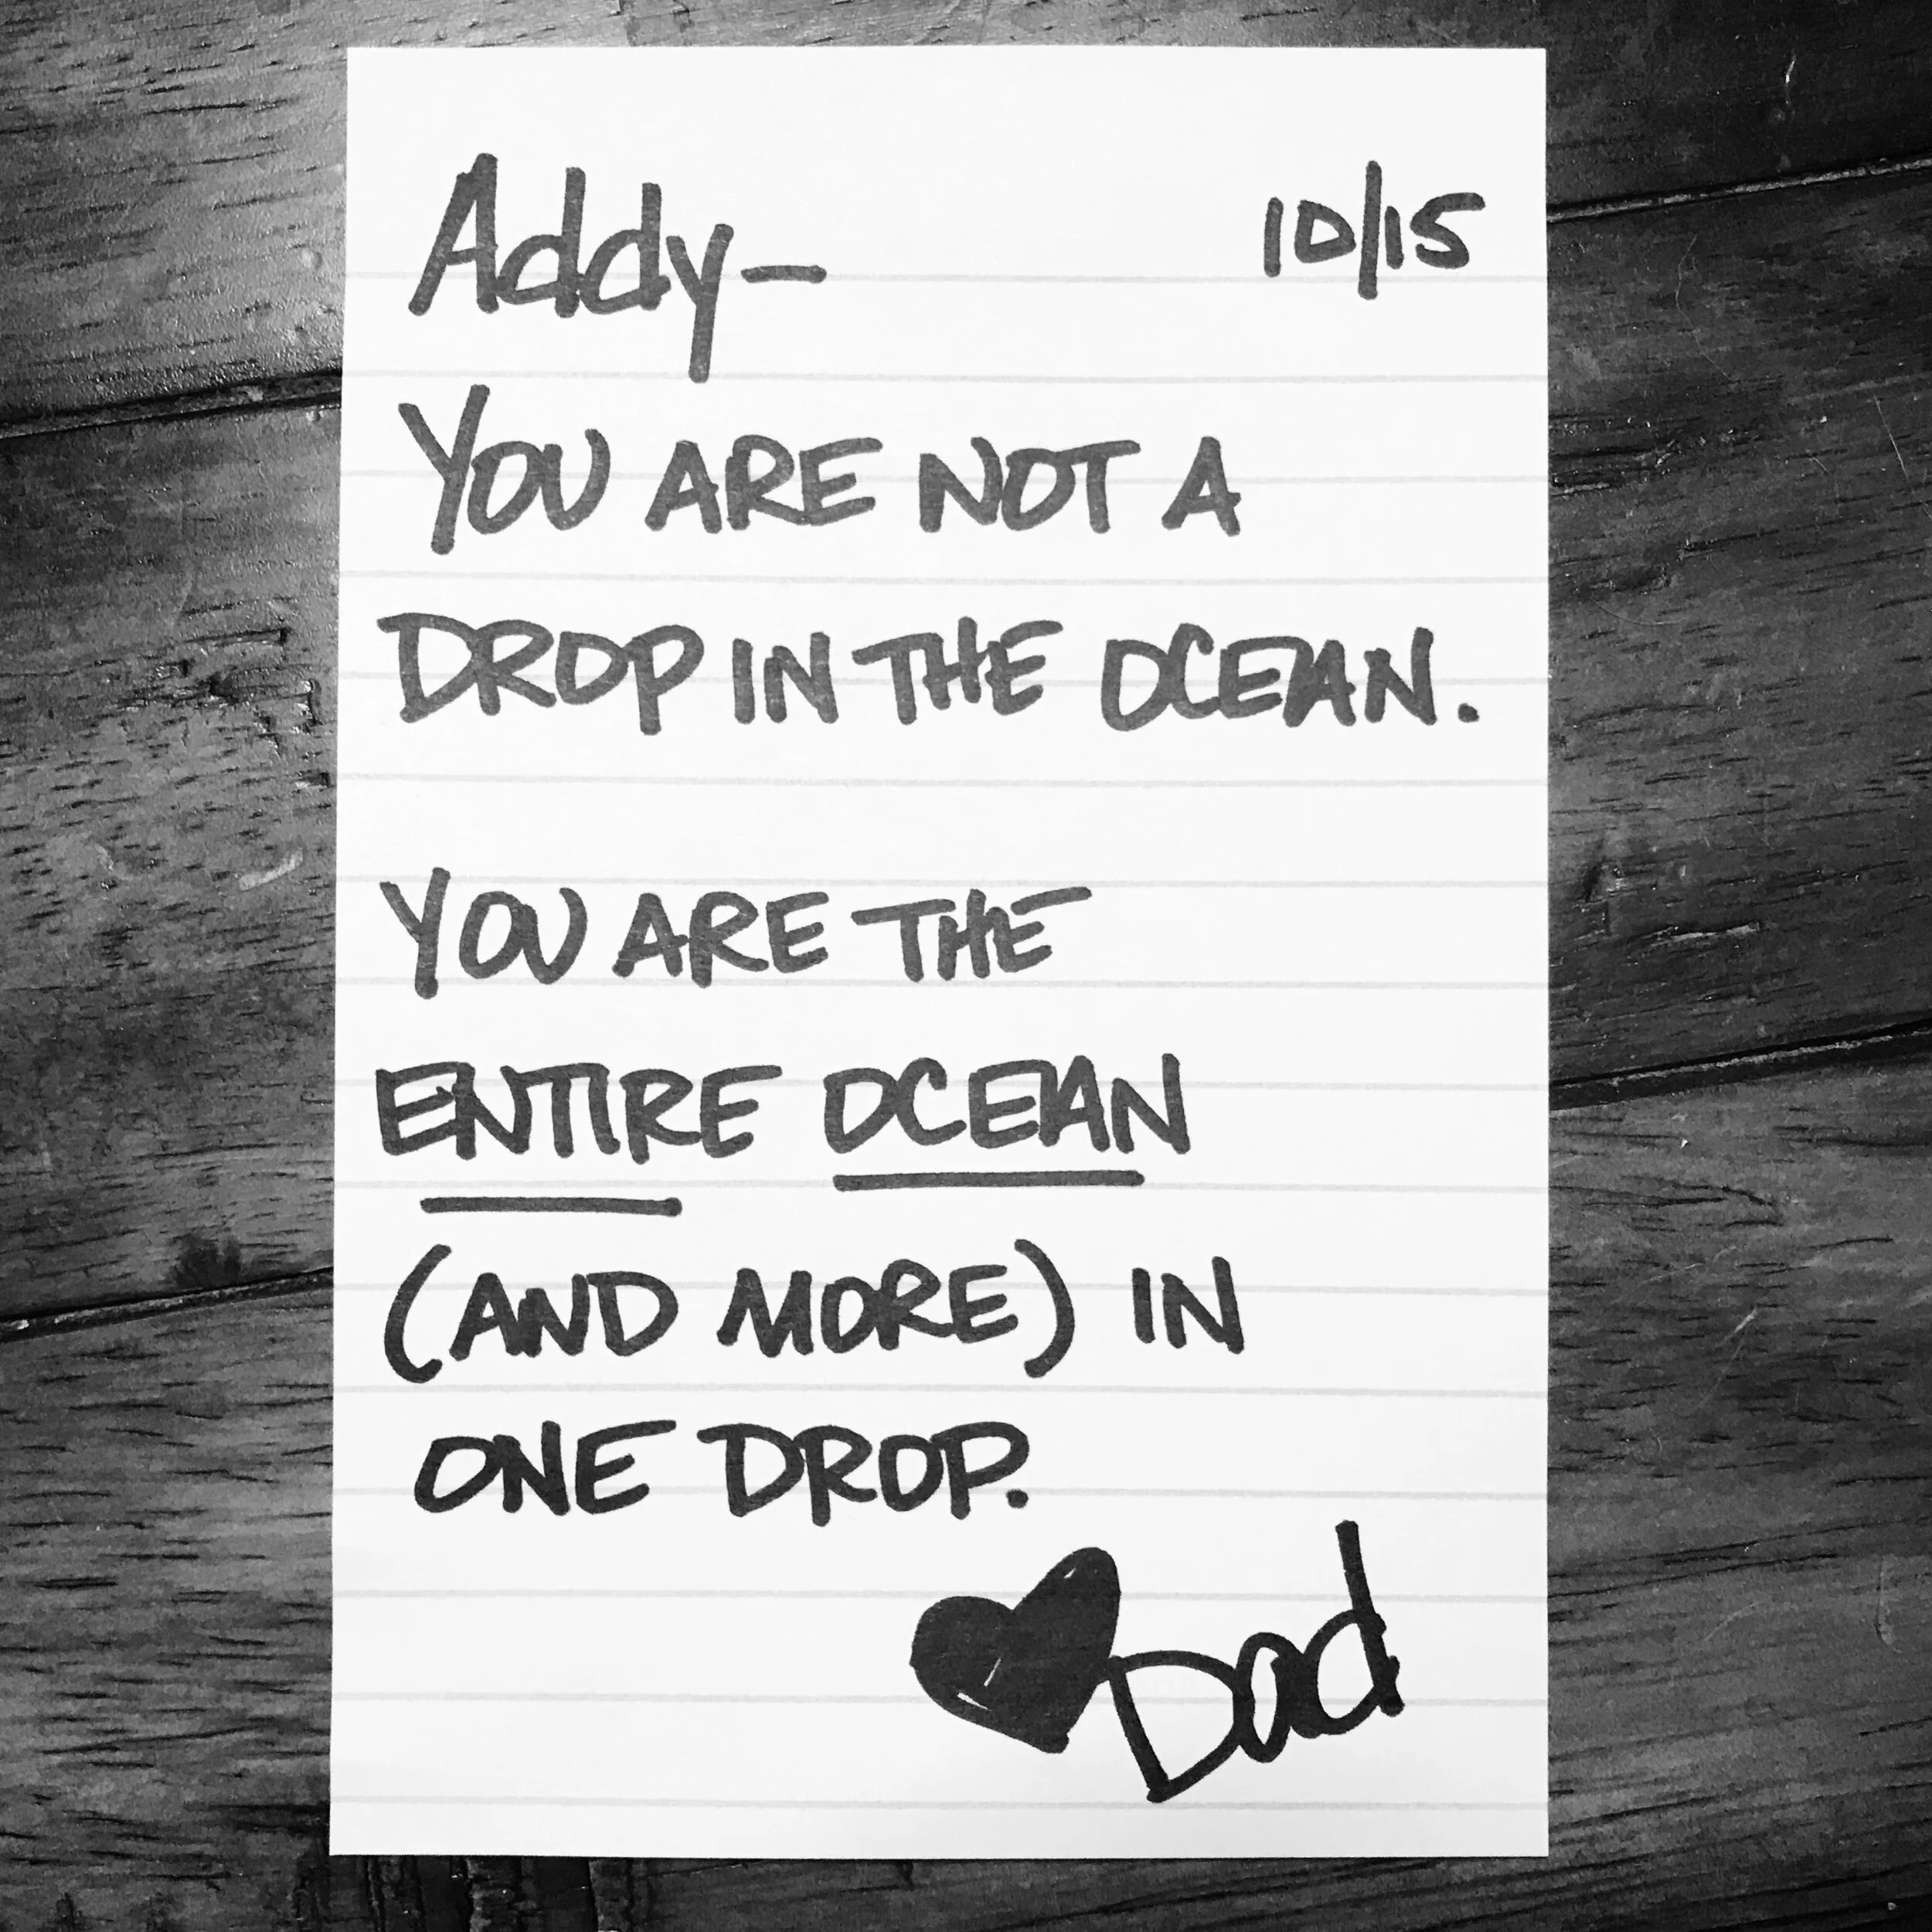 Addy- 10/15
YOU ARE NOT A
DROP IN THE OCEAN.
YOU ARE THE
ENTIRE OCEAN
(AND MORE) IN
ONE DROP.
Dad